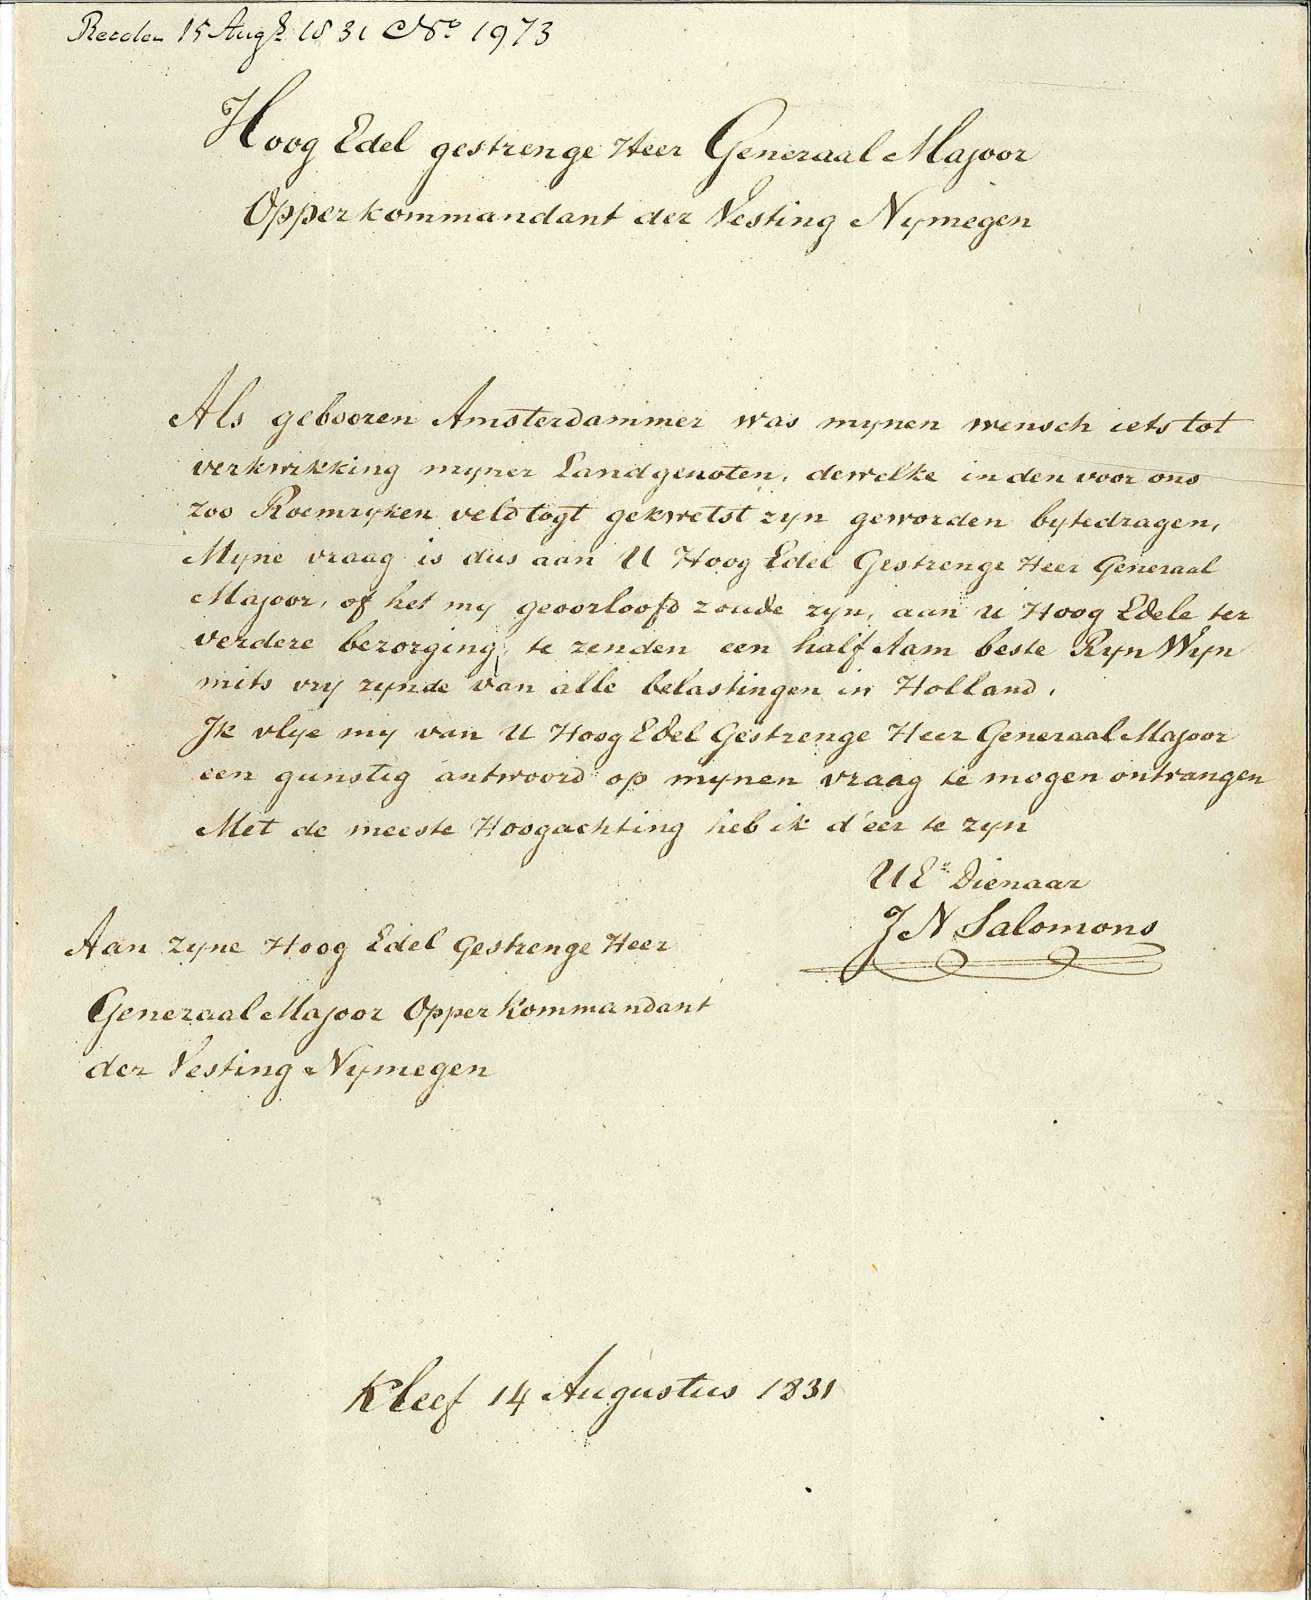 15 Augs 1831 No 1973
Hoog Edel gestrenge Heer Generaal Majoor
Opperkommandant der Vesting Nymegen
Als gebooren Amsterdammer was mynen wensch iets tot
verkwikking myner Landgenoten, dewelke in den voor ons
zoo Roemryken veldtogt gekwetst zyn geworden bytedragen,
Myne vraag is dus aan U Hoog Edel Gestrenge Heer Generaal
Majoor, of het my geoorloofd zoude zyn, aan U Hoog Edele ter
verdere bezorging, te zenden een half Aam beste Ryn Wyn
mits vry zynde van alle belastingen in Holland.
Ik vlye my van U Hoog Edel Gestrenge Heer Generaal Majoor
een gunstig antwoord op mynen vraag te mogen ontvangen
Met de meeste Hoogachting heb ik d'eer te zyn
UEr Dienaar
J N Salomons
Aan zyne Hoog Edel Gestrenge Heer
Generaal Majoor Opperkommandant
der Vesting Nymegen
Kleef 14 Augustus 1831